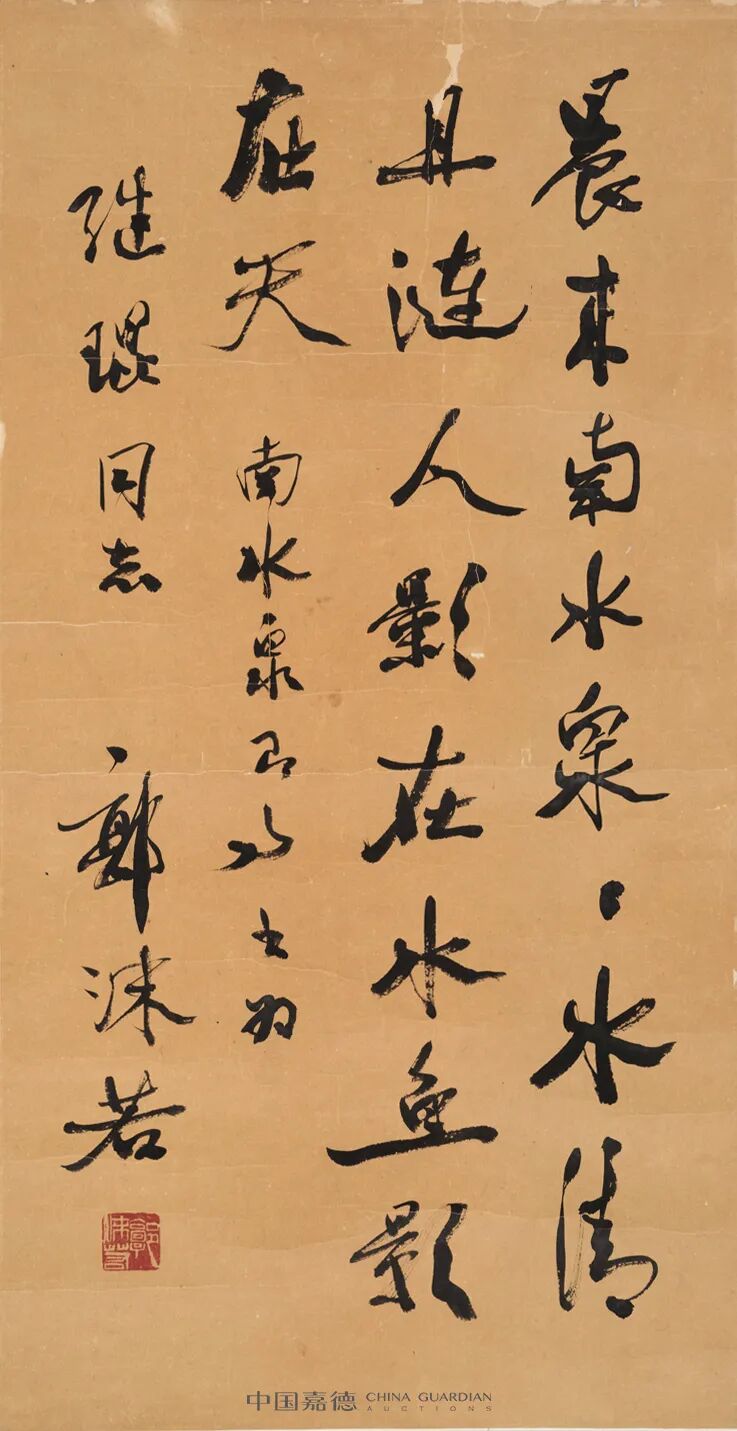 晨来南水泉、水清
且涟人影在水鱼影
在天 南水泉即事书为
继琨同志 郭沫若
郭沫若
中国嘉德 CHINA GUARDIAN
AUCTIONS